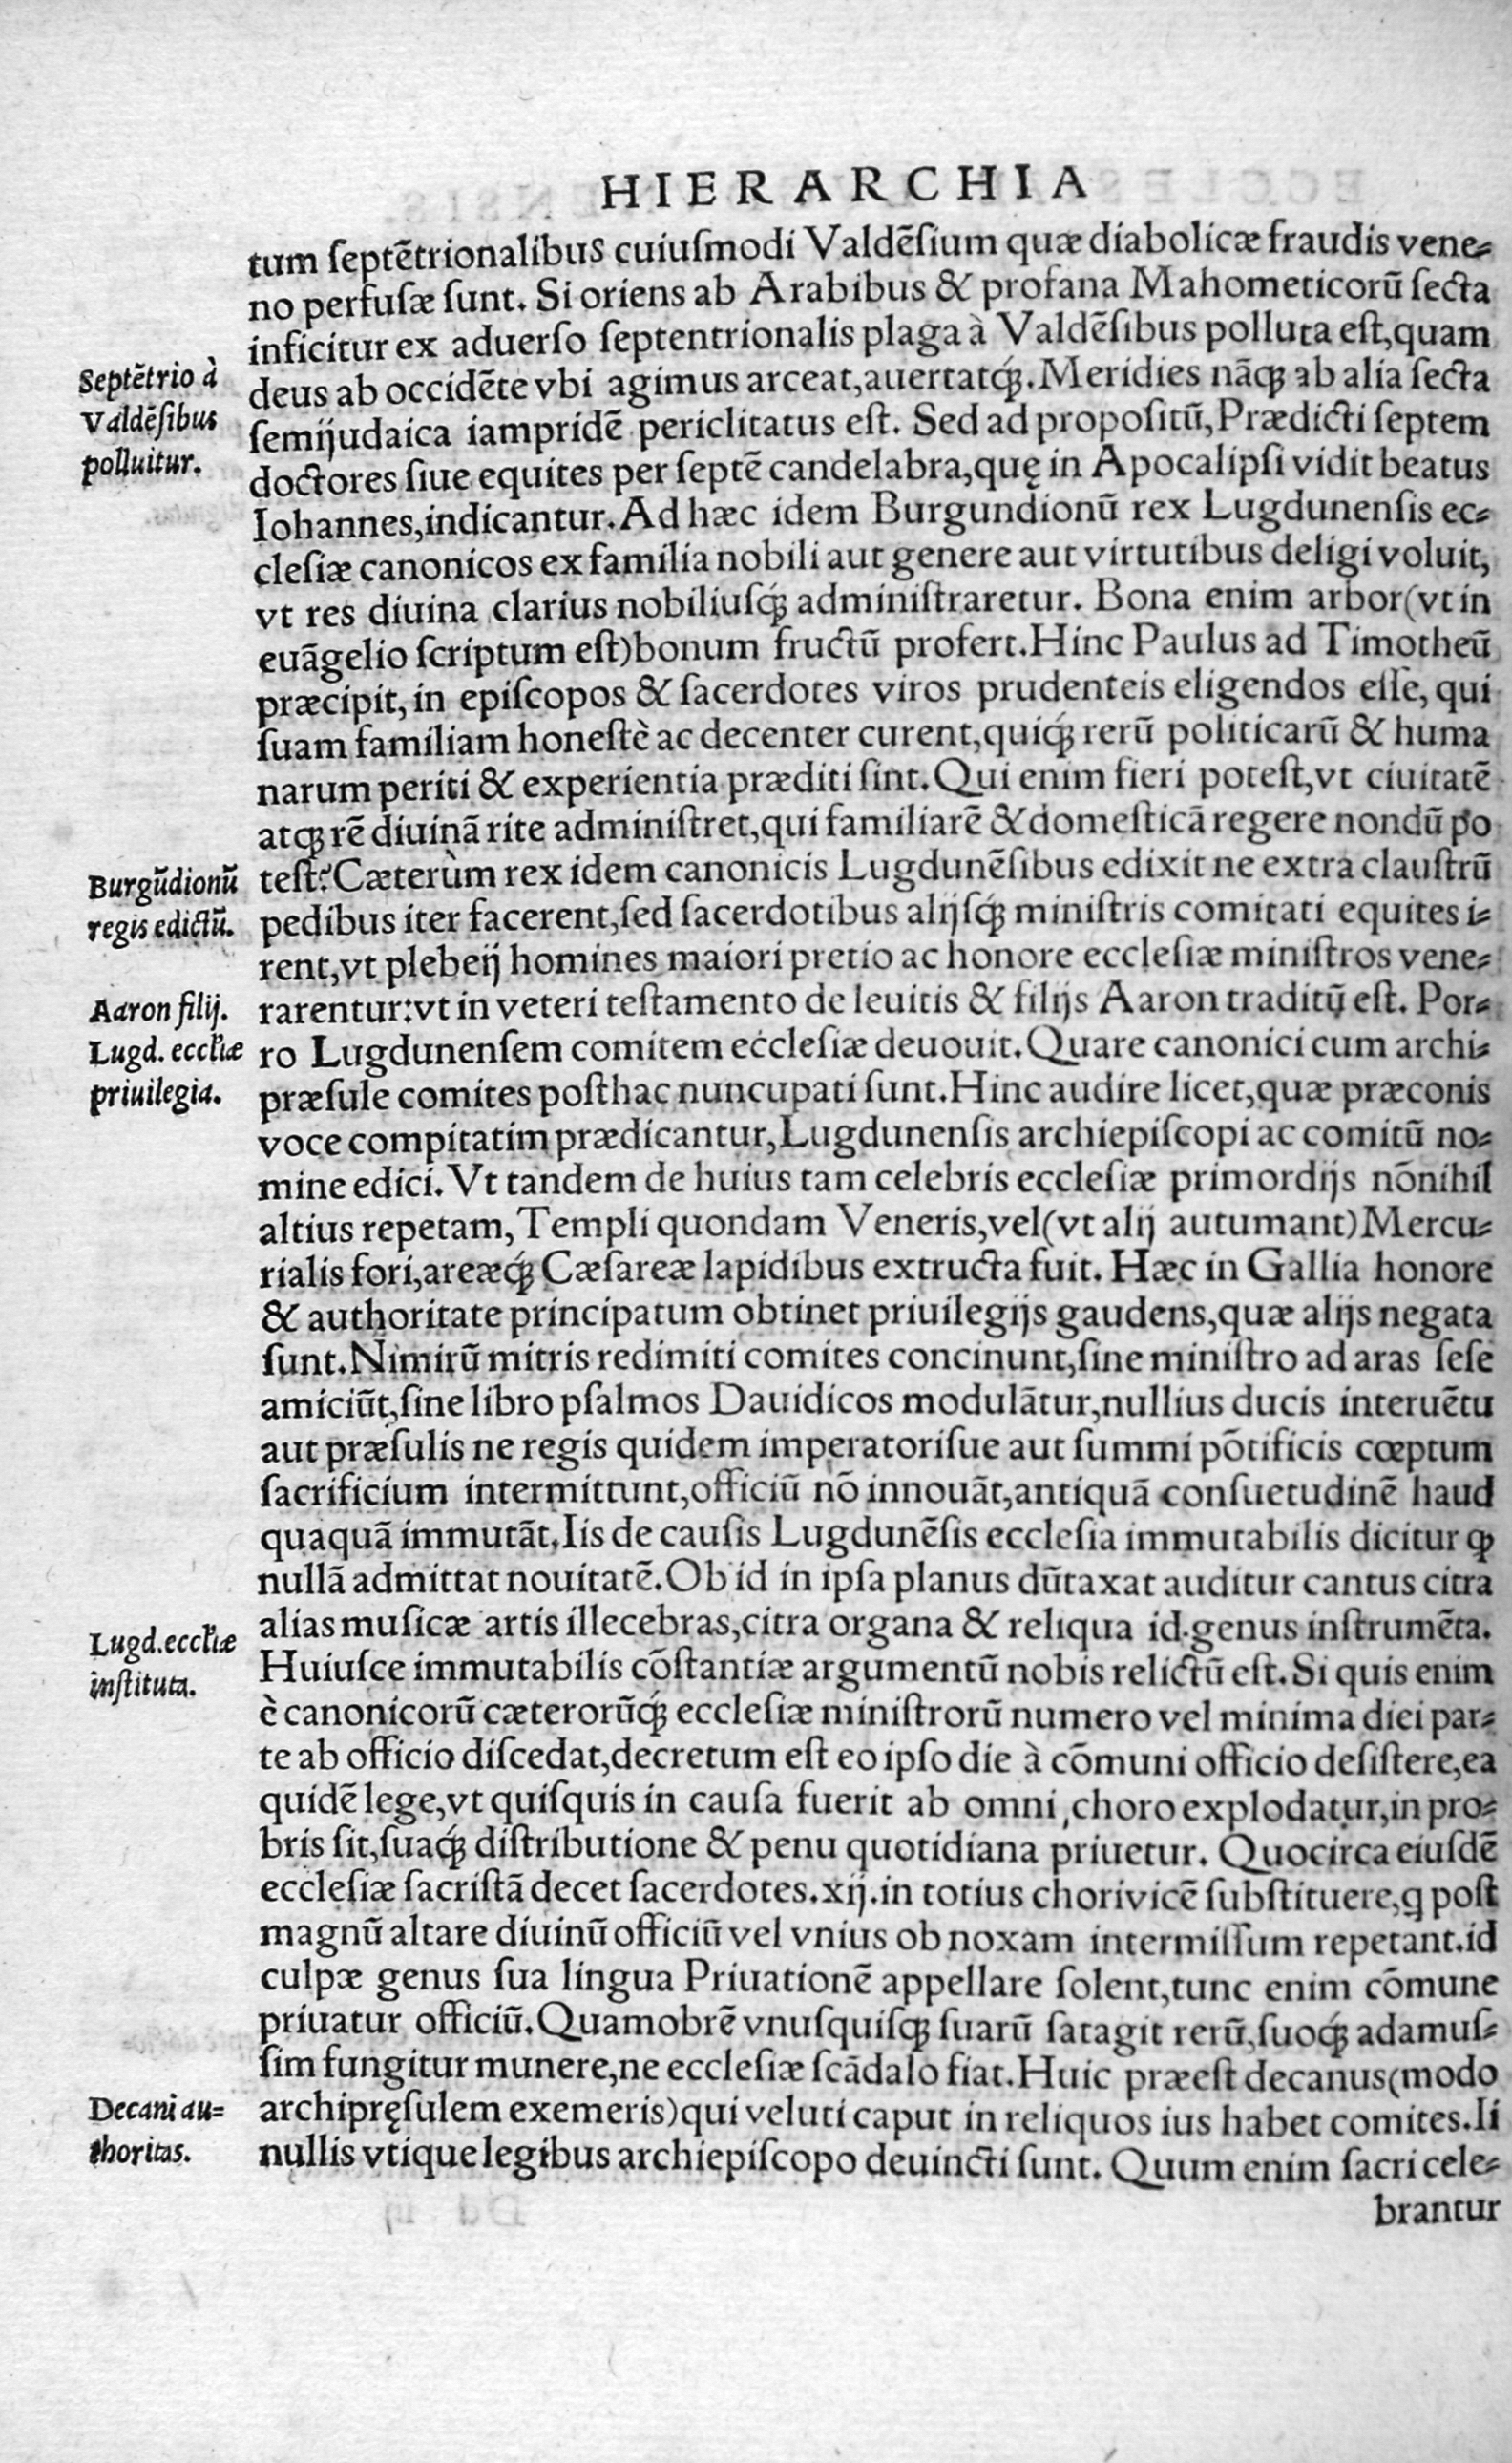 HIERARCHIA
tum ſeptẽtrionalibus cuiuſmodi Valdẽſium quæ diabolicæ fraudis vene⸗
no perfuſæ ſunt. Si oriens ab Arabibus & profana Mahometicorũ ſecta
inficitur ex aduerſo ſeptentrionalis plaga à Valdẽſibus polluta eſt, quam
Septẽtrio à
Valdẽſibus
polluitur.
deus ab occidẽte vbi agimus arceat, auertatq́;. Meridies nãq; ab alia ſecta
ſemijudaica iampridẽ periclitatus eſt. Sed ad propoſitũ, Prædicti ſeptem
doctores ſiue equites per ſeptẽ candelabra, quę in Apocalipſi vidit beatus
Iohannes, indicantur. Ad hæc idem Burgundionũ rex Lugdunenſis ec⸗
cleſiæ canonicos ex familia nobili aut genere aut virtutibus deligi voluit,
vt res diuina clarius nobiliuſq́; adminiſtraretur. Bona enim arbor (vt in
euãgelio ſcriptum eſt) bonum fructũ profert. Hinc Paulus ad Timotheũ
præcipit, in epiſcopos & ſacerdotes viros prudenteis eligendos eſſe, qui
ſuam familiam honeſtè ac decenter curent, quiq́; rerũ politicarũ & huma
narum periti & experientia præditi ſint. Qui enim fieri poteſt, vt ciuitatẽ
atq; rẽ diuinã rite adminiſtret, qui familiarẽ & domeſticã regere nondũ po
Burgũdionũ
regis edictũ.
teſt? Cæterùm rex idem canonicis Lugdunẽſibus edixit ne extra clauſtrũ
pedibus iter facerent, ſed ſacerdotibus alijſq́; miniſtris comitati equites i⸗
rent, vt plebeij homines maiori pretio ac honore eccleſiæ miniſtros vene⸗
Aaron filij.
Lugd. eccl'iæ
priuilegia.
rarentur: vt in veteri teſtamento de leuitis & filijs Aaron traditũ eſt. Por⸗
ro Lugdunenſem comitem eccleſiæ deuouit. Quare canonici cum archi⸗
præſule comites poſthac nuncupati ſunt. Hinc audire licet, quæ præconis
voce compitatim prædicantur, Lugdunenſis archiepiſcopi ac comitũ no⸗
mine edici. Vt tandem de huius tam celebris eccleſiæ primordijs nõnihil
altius repetam, Templi quondam Veneris, vel (vt alij autumant) Mercu⸗
rialis fori, areæq́; Cæſareæ lapidibus extructa fuit. Hæc in Gallia honore
& authoritate principatum obtinet priuilegijs gaudens, quæ alijs negata
ſunt. Nimirũ mitris redimiti comites concinunt, ſine miniſtro ad aras ſeſe
amiciũt, ſine libro pſalmos Dauidicos modulãtur, nullius ducis interuẽtu
aut præſulis ne regis quidem imperatoriſue aut ſummi põtificis cœptum
ſacrificium intermittunt, officiũ nõ innouãt, antiquã conſuetudinẽ haud
quaquã immutãt. Iis de cauſis Lugdunẽſis eccleſia immutabilis dicitur ꝙ
nullã admittat nouitatẽ. Ob id in ipſa planus dũtaxat auditur cantus citra
Lugd. eccl'iæ
inſtituta.
alias muſicæ artis illecebras, citra organa & reliqua id genus inſtrumẽta.
Huiuſce immutabilis cõſtantiæ argumentũ nobis relictũ eſt. Si quis enim
è canonicorũ cæterorũq́; eccleſiæ miniſtrorũ numero vel minima diei par⸗
te ab officio diſcedat, decretum eſt eo ipſo die à cõmuni officio deſiſtere, ea
quidẽ lege, vt quiſquis in cauſa fuerit ab omni choro explodatur, in pro⸗
bris ſit, ſuaq́; diſtributione & penu quotidiana priuetur. Quocirca eiuſdẽ
eccleſiæ ſacriſtã decet ſacerdotes .xij. in totius chori vicẽ ſubſtituere, q poſt
magnũ altare diuinũ officiũ vel vnius ob noxam intermiſſum repetant. id
culpæ genus ſua lingua Priuationẽ appellare ſolent, tunc enim cõmune
priuatur officiũ. Quamobrẽ vnuſquiſq; ſuarũ ſatagit rerũ, ſuoq́; adamuſ⸗
ſim fungitur munere, ne eccleſiæ ſcãdalo fiat. Huic præeſt decanus (modo
Decani au=
thoritas.
archipręſulem exemeris) qui veluti caput in reliquos ius habet comites. Ii
nullis vtique legibus archiepiſcopo deuincti ſunt. Quum enim ſacri cele⸗
brantur